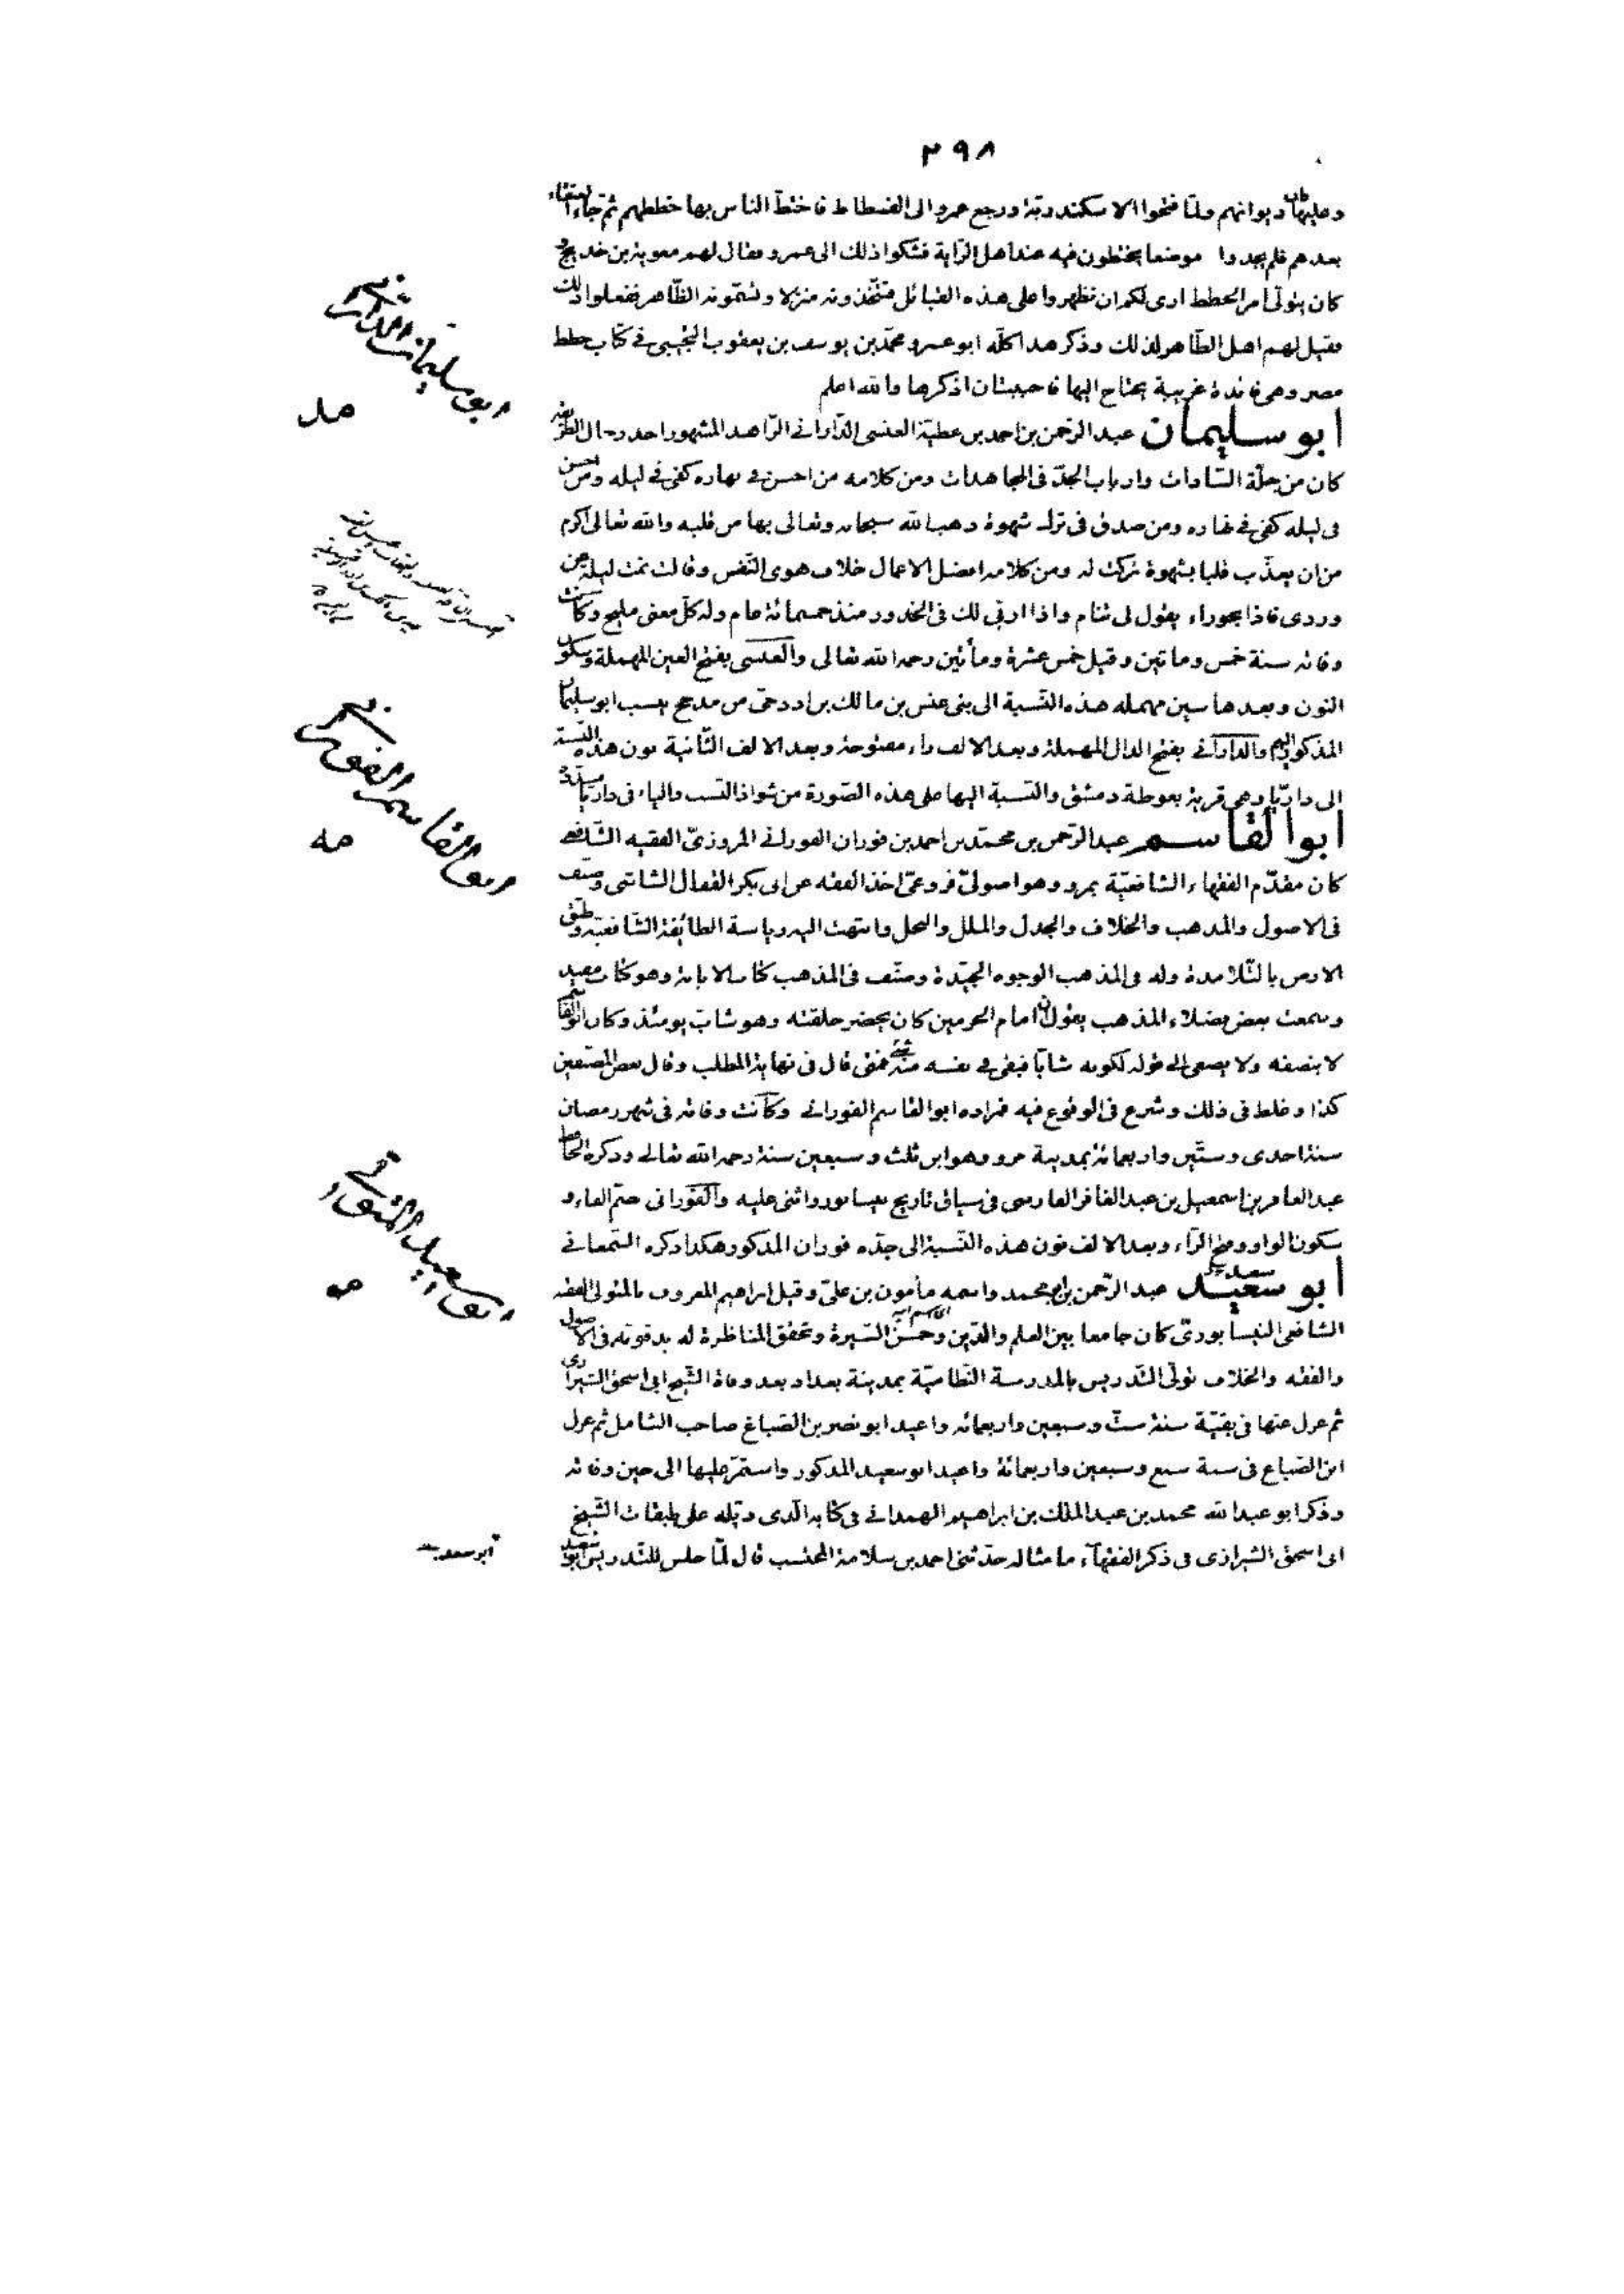 ٢٩٨
وعليها كان ديوانهم ولمّا فتحوا الاسكندريّة ورجع عمرو الى الفسطاط فاختطّ الناس بها خططهم ثم جاء العتقاء
بعدهم فلم يجدوا موضعا يختطون فيه عند اهل الرّاية فشكوا ذلك الى عمرو فقال لهم معوية بن خديج و
كان يتولّى امر الخطط ارى لكم ان تظهروا على هذه القبائل فتتّخذونه منزلا وتسمّونه الظّاهر ففعلوا ذلك
فقيل لهم اهل الظّاهر لذلك وذكر هذا كلّه ابو عمرو محمّد بن يوسف بن يعقوب التّجيبى فى كتاب خطط
مصر وهى فائدة غريبة يحتاج اليها فاحببت ان اذكرها والله اعلم
ابو سليمان عبد الرّحمن بن احمد بن عطيّة العنسى الدّارانى الزّاهد المشهور احد رجال الطّريقة
كان من جلّة السّادات وارباب الجدّ فى المجاهدات ومن كلامه من احسن فى نهاره كفى فى ليله ومن احسن
فى ليله كفى فى نهاره ومن صدق فى ترك شهوة ذهب الله سبحانه وتعالى بها من قلبه والله تعالى اكرم
من ان يعذّب قلبا بشهوة تركت له ومن كلامه افضل الاعمال خلاف هوى النّفس وقال نمت ليلة عن
وردى فاذا بحوراء يقول لى تنام وانا اربّى لك فى الخدور منذ خمسمائة عام وله كلّ معنى مليح وكانت
وفاته سنة خمس ومائتين وقيل خمس عشرة ومأتين رحمه الله تعالى والعنسى بفتح العين المهملة وسكون
النون وبعدها سين مهمله هذه النّسبة الى بنى عنس بن مالك بن ادد حىّ من مذحج ينسب ابو سليمان
المذكور اليهم والدّارانى بفتح الدال المهملة وبعد الالف راء مفتوحة وبعد الالف الثّانية نون هذه النّسبة
الى داريّا وهى قرية بغوطة دمشق والنّسبة اليها على هذه الصّورة من شواذ النسب والياء فى داريّا مشدّدة
ابو القاسم عبد الرّحمن بن محمّد بن احمد بن فوران الفورانى المروزىّ الفقيه الشّافعى
كان مقدّم الفقهاء الشافعيّة بمرو وهو اصولىّ فروعىّ اخذ الفقه عن ابى بكر القفال الشاشى وصنف
فى الاصول والمذهب والخلاف والجدل والملل والنحل وانتهت اليه رياسة الطائفة الشّافعيّة وطبّق
الارض بالتّلامذة وله فى المذهب الوجوه الجيّدة وصنّف فى المذهب كتاب الابانة وهو كتاب مفيد
وسمعت بعض فضلاء المذهب يقول ان امام الحرمين كان يحضر حلقته وهو شابّ يومئذ وكان ابو القاسم
لا ينصفه ولا يصغى الى قوله لكونه شابّا فبقى فى نفسه منه شئ فمتى قال فى نهاية المطلب وقال بعض المصنّفين
كذا وغلط فى ذلك وشرع فى الوقوع فيه فمراده ابو القاسم الفورانى وكانت وفاته فى شهر رمضان
سنة احدى وستّين واربعمائة بمدينة مرو وهو ابن ثلث وسبعين سنة رحمه الله تعالى وذكره الحافظ
عبد الغافر بن اسمعيل بن عبد الغافر الفارسى فى سياق تاريخ نيسابور واثنى عليه والفورانى بضم الفاء و
سكون الواو وفتح الرّاء وبعد الالف نون هذه النّسبة الى جدّه فوران المذكور هكذا ذكره السّمعانى
ابو سعيد عبد الرّحمن بن ابى محمد واسمه مأمون بن علىّ وقيل ابراهيم المعروف بالمتولى الفقيه
الشافعى النيسابورىّ كان جامعا بين العلم والدّين وحسن السّيرة وتحقق المناظرة له يد قويّة فى الاصول
والفقه والخلاف تولّى التّدريس بالمدرسة النّظاميّة بمدينة بغداد بعد وفاة الشّيخ ابى اسحق الشيرازى
ثم عزل عنها فى بقيّة سنة ستّ وسبعين واربعمائه واعيد ابو نصر بن الصّباغ صاحب الشامل ثم عزل
ابن الصّباغ فى سنة سبع وسبعين واربعمائة واعيد ابو سعيد المذكور واستمرّ عليها الى حين وفاته
وذكر ابو عبد الله محمد بن عبد الملك بن ابراهيم الهمدانى فى كتابه الّذى ذيّله على طبقات الشّيخ
ابى اسحق الشيرازى فى ذكر الفقهآء ما مثاله حدّثنى احمد بن سلامة المحتسب قال لمّا جلس للتّدريس ابو سعيد
ابو سليمان الدّارانى
ابو القاسم الفورانى
ابو سعيد المتولّى
ابو سعد